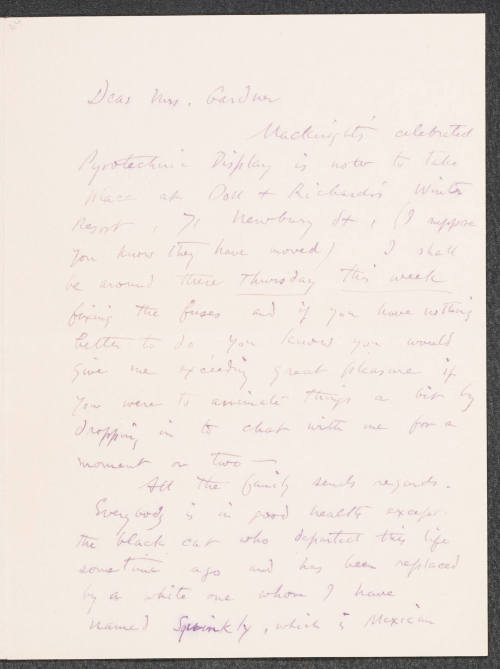 Dear Mrs. Gardner
Macknight's celebrated
Pyrotechnic Display is now to take
place at Doll & Richards's Winter
Resort, 71 Newbury St, (I suppose
you know they have moved) I shall
be around there Thursday this week
fixing the fuses and if you have nothing
better to do you know you would
give me exceeding great pleasure if
you were to animate things a bit by
dropping in to chat with me for a
moment or two —
All the family sends regards.
Everybody is in good health except
the black cat who departed this life
sometime ago and has been replaced
by a white one whom I have
named Sprinkly, which is Mexican